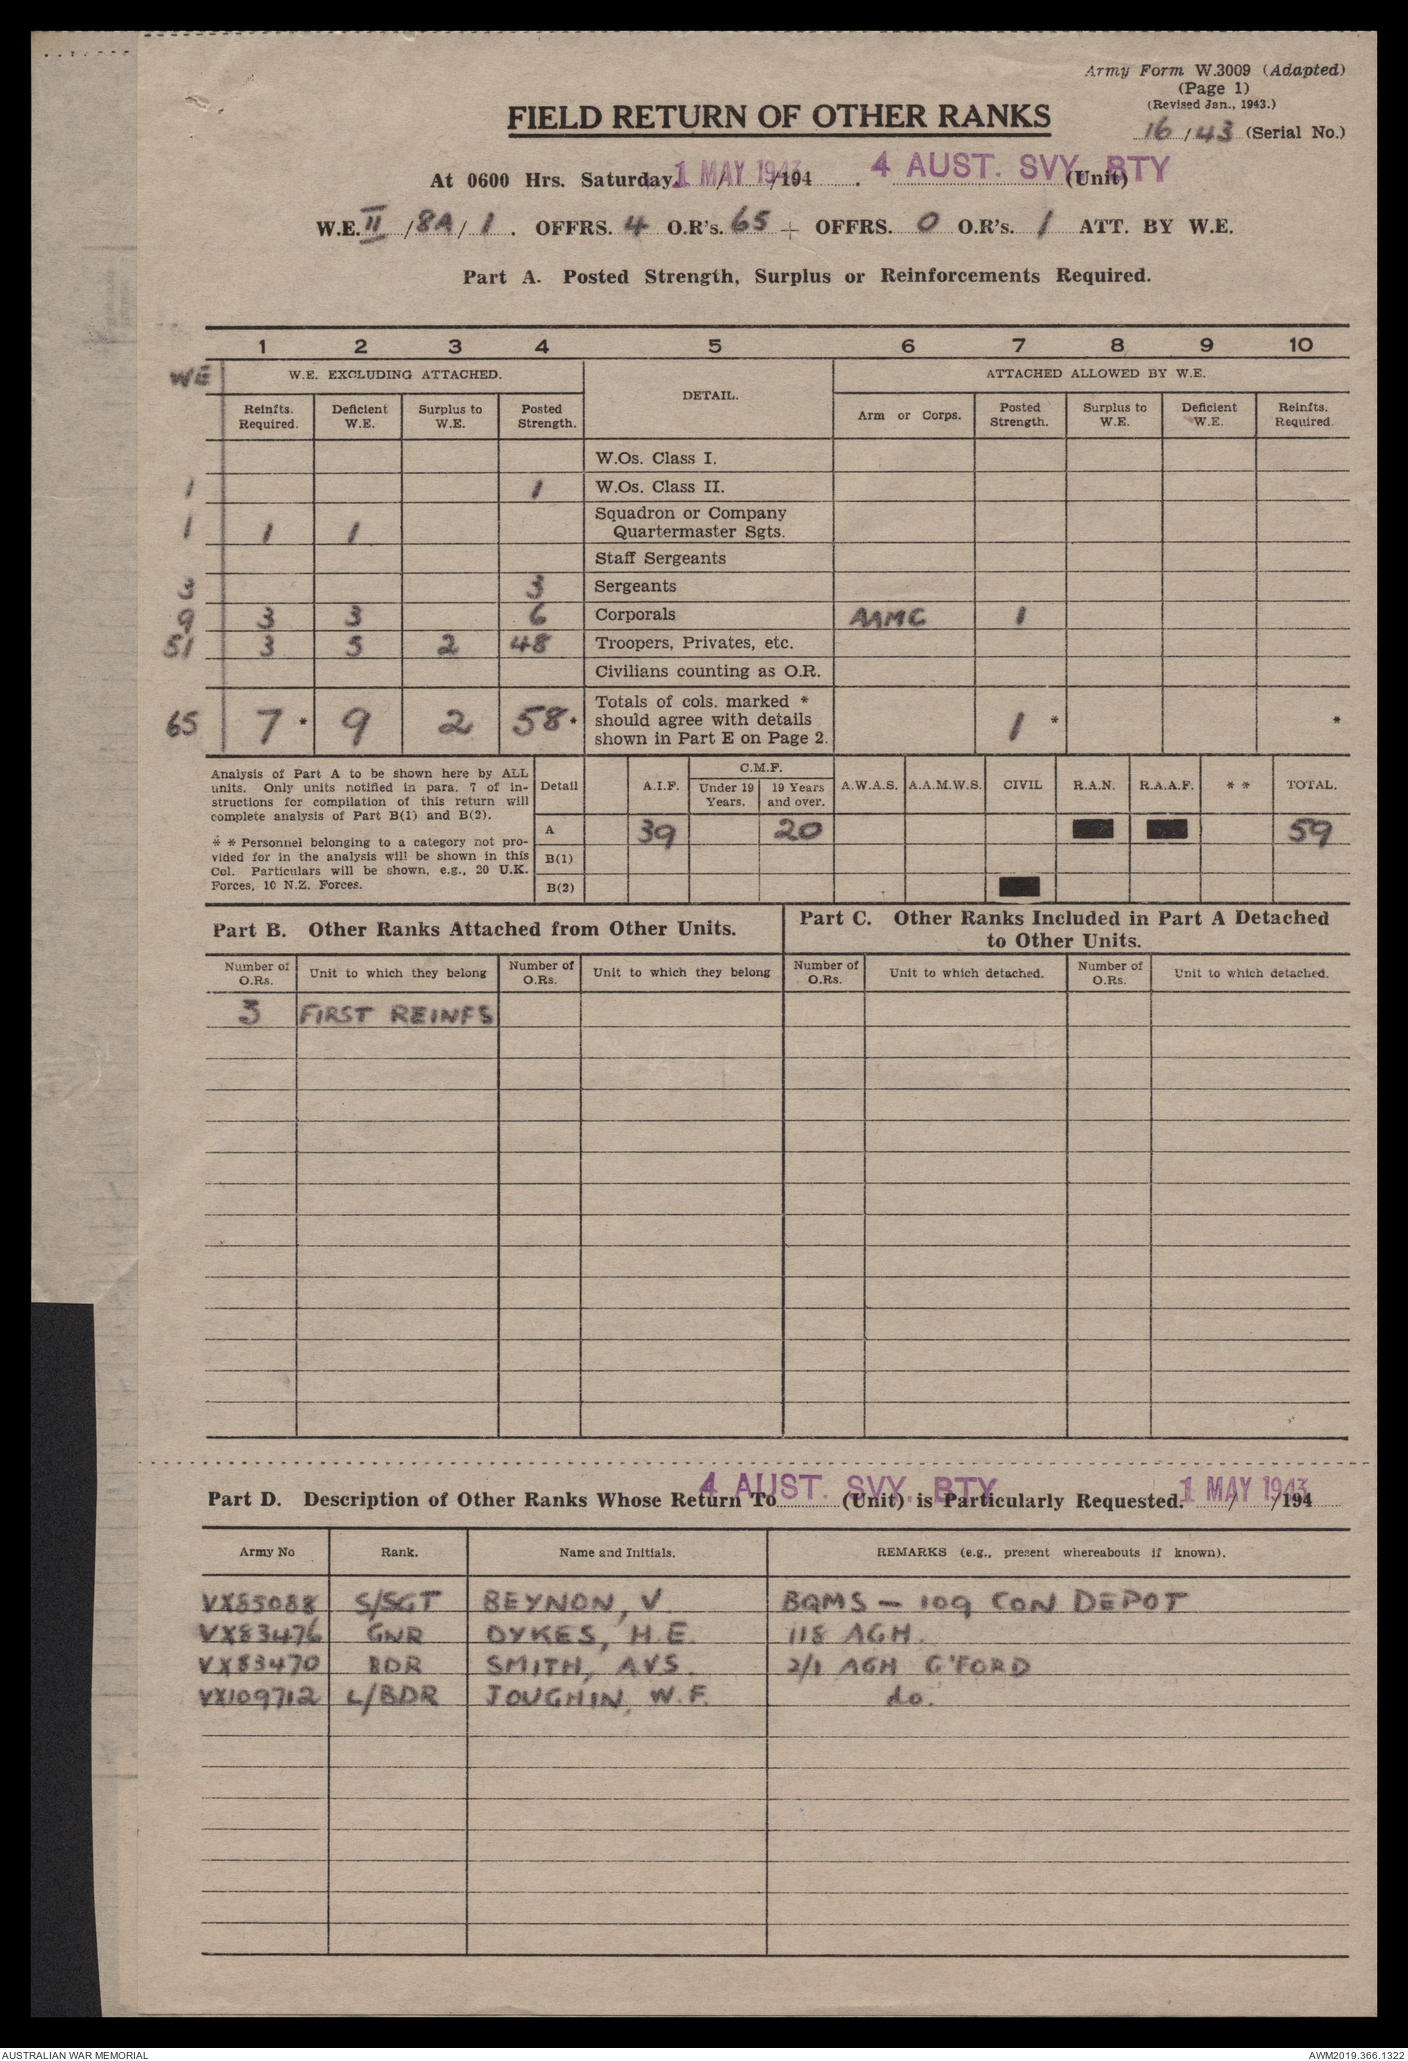 Army Form W.3009 (Adapted)
(Page 1)
(Revised Jan., 1943.)
FIELD RETURN OF OTHER RANKS
16/43 (Serial No.)
At 0600 Hrs. Saturday, 1 MAY 1943 /194 . 4 AUST. SVY. BTY (Unit)
W.E. II /8A/ 1 . OFFRS. 4 O.R's. 65 + OFFRS. 0 O.R's. 1 ATT. BY W.E.
Part A. Posted Strength, Surplus or Reinforcements Required.
1 2 3 4 5 6 7 8 9 10
WE W.E. EXCLUDING ATTACHED. DETAIL. ATTACHED ALLOWED BY W.E.
Reinfts. Required. Deficient W.E. Surplus to W.E. Posted Strength. Arm or Corps. Posted Strength. Surplus to W.E. Deficient W.E. Reinfts. Required.
W.Os. Class I.
1 1 W.Os. Class II.
1 1 1 Squadron or Company
Quartermaster Sgts.
Staff Sergeants
3 3 Sergeants
9 3 3 6 Corporals AAMC 1
51 3 5 2 48 Troopers, Privates, etc.
Civilians counting as O.R.
65 7 * 9 2 58 * Totals of cols. marked * should agree with details shown in Part E on Page 2. 1 * *
Analysis of Part A to be shown here by ALL
units. Only units notified in para. 7 of in-
structions for compilation of this return will
complete analysis of Part B(1) and B(2).
* * Personnel belonging to a category not pro-
vided for in the analysis will be shown in this
Col. Particulars will be shown, e.g., 20 U.K.
Forces, 10 N.Z. Forces.
Detail A.I.F. C.M.F. Under 19 Years. 19 Years and over. A.W.A.S. A.A.M.W.S. CIVIL R.A.N. R.A.A.F. * * TOTAL.
A 39 20 59
B(1)
B(2)
Part B. Other Ranks Attached from Other Units.
Part C. Other Ranks Included in Part A Detached
to Other Units.
Number of O.Rs. Unit to which they belong Number of O.Rs. Unit to which they belong Number of O.Rs. Unit to which detached. Number of O.Rs. Unit to which detached.
3 FIRST REINFS
Part D. Description of Other Ranks Whose Return To 4 AUST. SVY. BTY (Unit) is Particularly Requested. 1 MAY 1943 / /194
Army No Rank. Name and Initials. REMARKS (e.g., present whereabouts if known).
VX85088 S/SGT BEYNON, V. BQMS - 109 CON DEPOT
VX83476 GNR DYKES, H.E. 118 AGH.
VX83470 BDR SMITH, A.V.S. 2/1 AGH G'FORD
VX109712 L/BDR JOUGHIN, W.F. do.
AUSTRALIAN WAR MEMORIAL AWM2019.366.1322